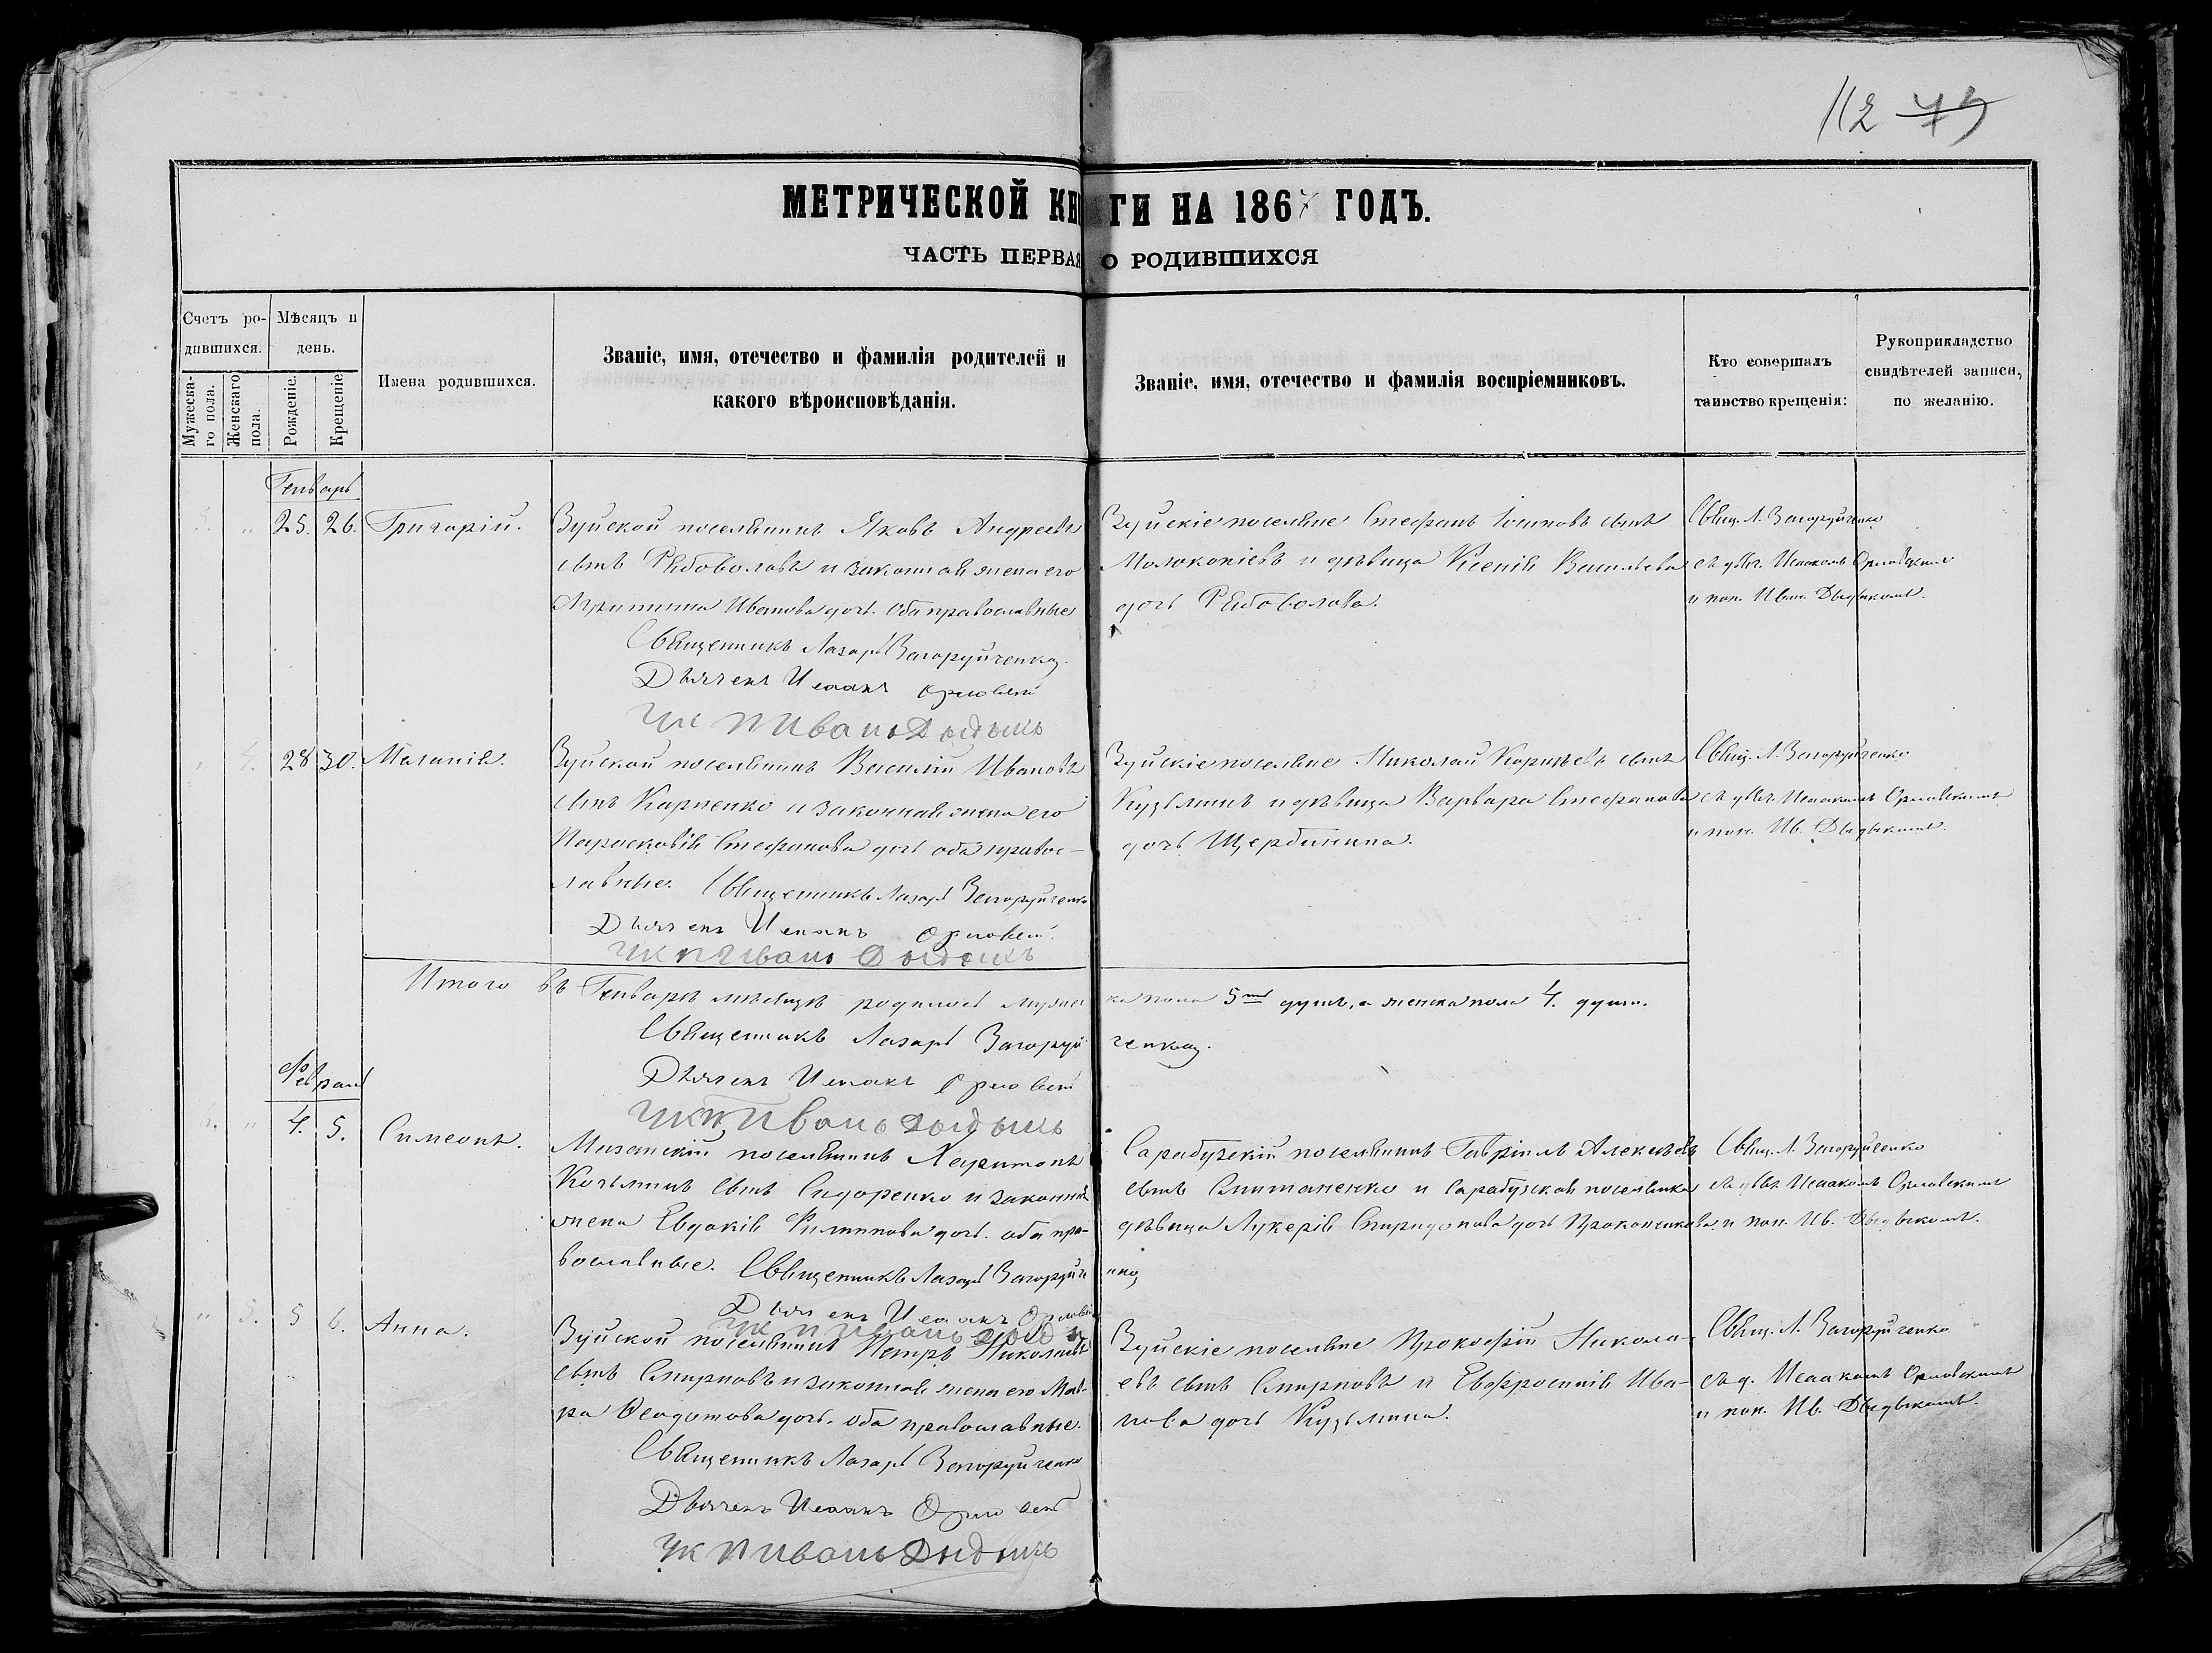 112 79
МЕТРИЧЕСКОЙ КНИГИ НА 1867 ГОДЪ.
ЧАСТЬ ПЕРВАЯ О РОДИВШИХСЯ
Счетъ ро-
дившихся.
Мужеска-
го пола.
Женскаго
пола.
Мѣсяцъ и
день.
Рожденіе.
Крещеніе.
Имена родившихся.
Званіе, имя, отечество и фамилія родителей и
какого вѣроисповѣданія.
Званіе, имя, отечество и фамилія воспріемниковъ.
Кто совершалъ
таинство крещенія:
Рукоприкладство
свидѣтелей записи,
по желанію.
Генварь
5. " 25. 26. Григорій.
Зуйской поселянинъ Яковъ Андреевъ
сынъ Рябоволовъ и законная жена его
Агрипина Иванова дочь. оба православные
Священникъ Лазарь Загоруйченко
Дьячекъ Исаакъ Орловскій
Иванъ Дыдыкъ
Зуйскіе поселяне Стефанъ сынъ
Молоконіевъ и дѣвица Ксенія Васильева
дочь Рябоволова.
Свящ. Л. Загоруйченко
съ дьяч. Исаакомъ Орловскимъ
и пон. Ив. Дыдыкомъ.
" 4. 28 30. Маланія.
Зуйской поселянинъ Василій Ивановъ
сынъ Карпенко и законная жена его
Парасковія Стефанова дочь оба правос-
лавные. Священникъ Лазарь Загоруйченко
Дьячекъ Исаакъ Орловскій
Иванъ Дыдыкъ
Зуйскіе поселяне Николай Корнѣевъ сынъ
Кузьминъ и дѣвица Варвара Стефанова
дочь Щербинина.
Свящ. Л. Загоруйченко
съ дьяч. Исаакомъ Орловскимъ
и пон. Ив. Дыдыкомъ.
Итого въ Генварѣ мѣсяцѣ родилось мужеска пола 5 душъ, а женска пола 4. души.
Священникъ Лазарь Загоруйченко
Дьячекъ Исаакъ Орловскій
Иванъ Дыдыкъ
Февраль
6. " 4. 5. Симеонъ.
Мазанскій поселянинъ Харитонъ
Козьминъ сынъ Сидоренко и законная
жена Евдокія Филипова дочь. оба пра-
вославные. Священникъ Лазарь Загоруйченко
Дьячекъ Исаакъ Орловскій
Иванъ Дыдыкъ
Сарабузскій поселянинъ Гавріилъ Алексѣевъ
сынъ Слитаненко и Сарабузская поселянка
дѣвица Лукерія Спиридонова дочь Прокопчикова
Свящ. Л. Загоруйченко
съ дьяч. Исаакомъ Орловскимъ
и пон. Ив. Дыдыкомъ.
" 5. 5 6. Анна.
Зуйской поселянинъ Петръ Николаевъ
сынъ Смирновъ и законная жена его Мав-
ра Ѳеодотова дочь. оба православные.
Священникъ Лазарь Загоруйченко
Дьячекъ Исаакъ Орловскій
Иванъ Дыдыкъ
Зуйскіе поселяне Прокофій Никола-
евъ сынъ Смирновъ и Евфросинія Ива-
нова дочь Кузьмина.
Свящ. Л. Загоруйченко
съ д. Исаакомъ Орловскимъ
и пон. Ив. Дыдыкомъ.